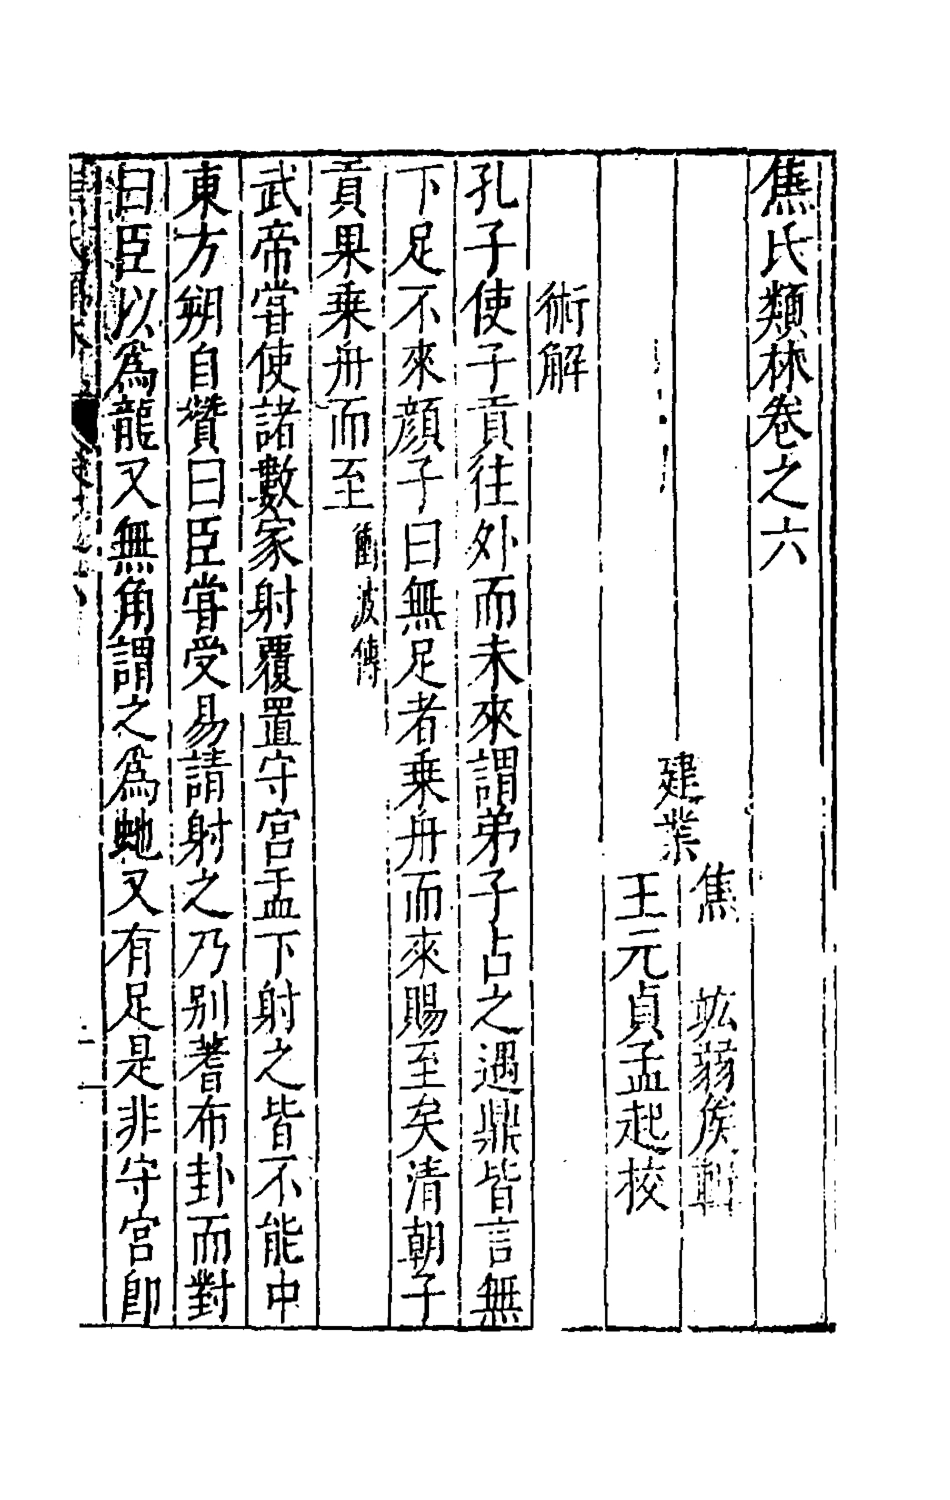 焦氏類林卷之六
建業
焦　竑弱侯輯
王元貞孟起校
術解
孔子使子貢往外而未來謂弟子占之遇鼎皆言無
下足不來顔子曰無足者乗舟而來賜至矣清朝子
貢果乗舟而至衝波傳
武帝甞使諸數家射覆置守宮盂下射之皆不能中
東方朔自贊曰臣甞受易請射之乃别蓍布卦而對
曰臣以爲龍又無角謂之爲虵又有足是非守宮卽